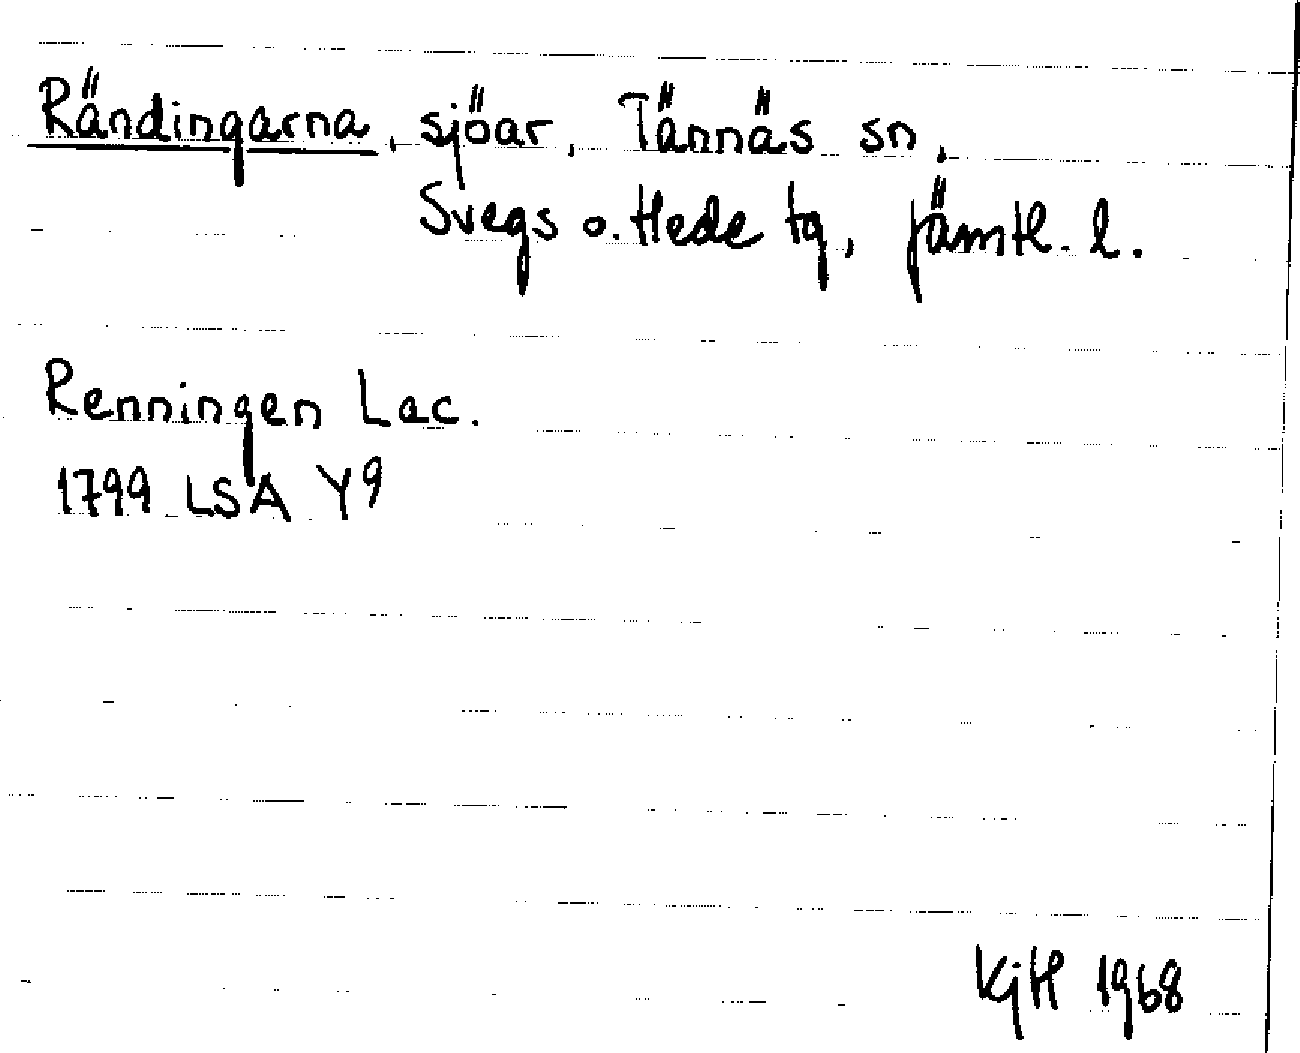 Rändingarna, sjöar, Tännäs sn,
Svegs o. Hede tg, Jämtl. l.
Renningen Lac.
1799 LSA Y9
KjH 1968